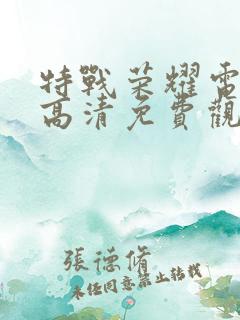 特戰荣耀電
高清免費觀
張德脩
未经同意禁止转载